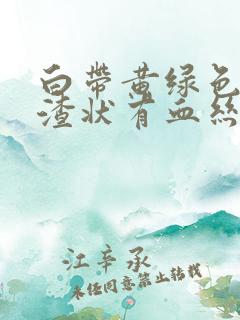 白带黄绿色
渣状有血丝
江辛承
未经同意禁止转载